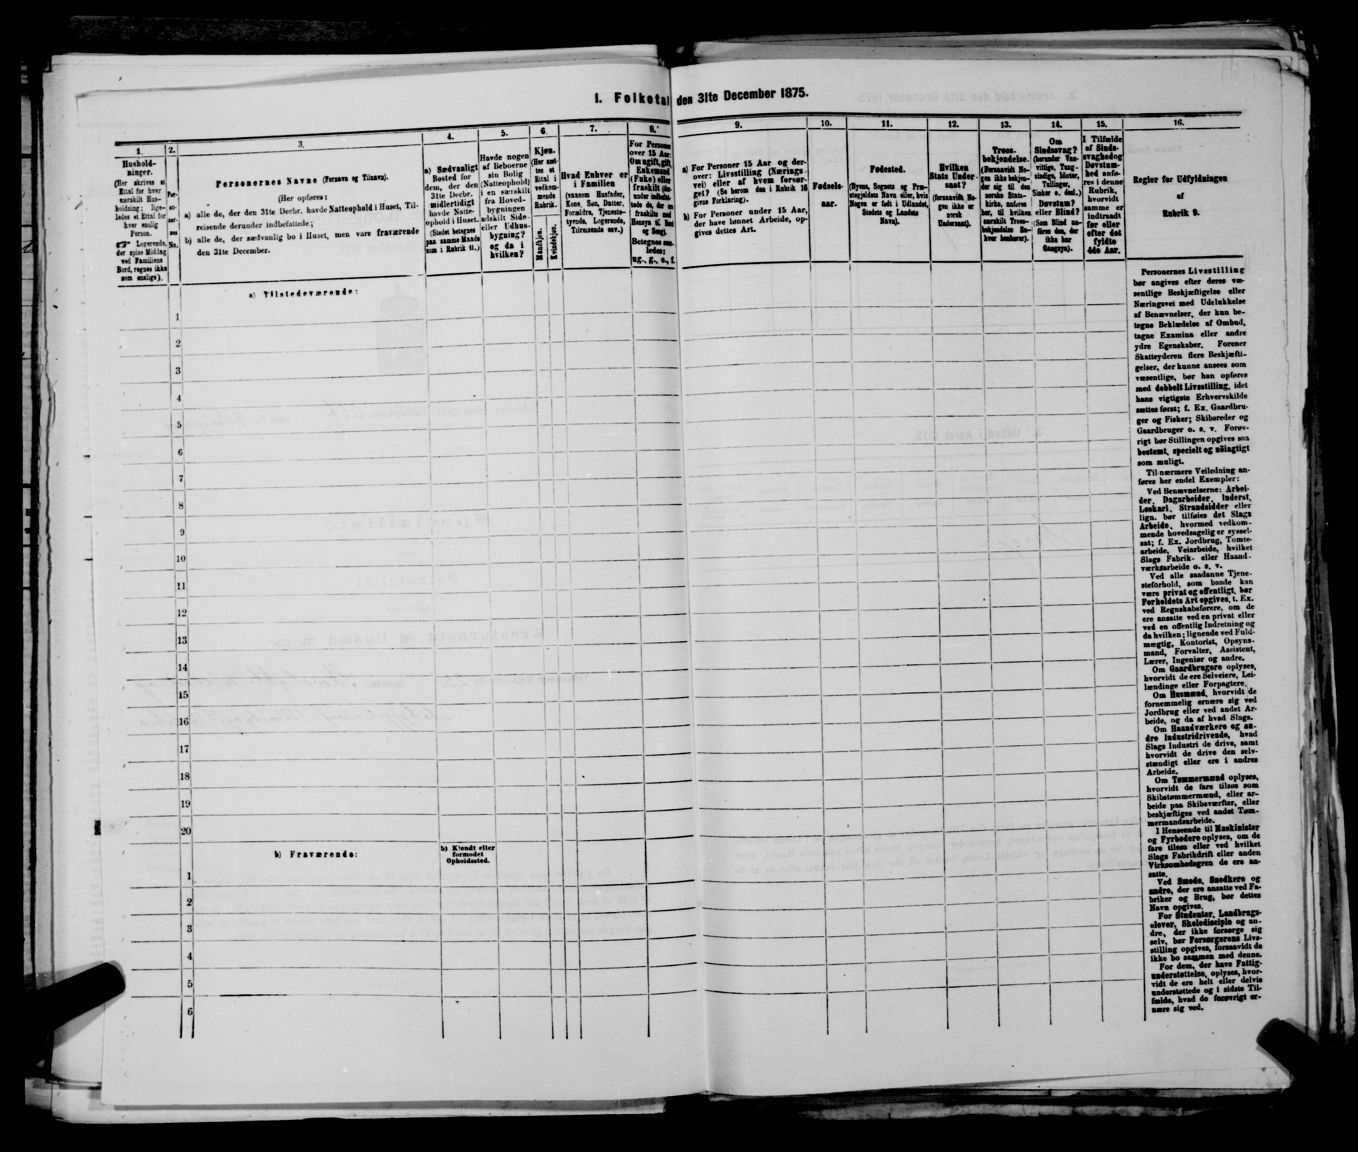 1. Folketal den 31te December 1875.
1.
Hushold-
ninger.
(Her skrives et
Ettal for hver
særskilt Hus-
holdning; lige-
ledes et Ettal for
hver enslig
Person.
☞ Logerende,
der spise Middag
ved Familiens
Bord, regnes ikke
som enslige).
2.
Per-
so-
ner-
nes
No.
3.
Personernes Navne (Fornavn og Tilnavn).
(Her opføres:
a) alle de, der den 31te Decbr. havde Natteophold i Huset, Til-
reisende derunder indbefattede;
b) alle de, der sædvanlig bo i Huset, men vare fraværende
den 31te December.
4.
a) Sædvanligt
Bosted for
dem, der den
31te Decbr.
midlertidigt
havde Natte-
ophold i Huset.
(Stedet betegnes
paa samme Maade
som i Rubrik 11.)
5.
Havde nogen
af Beboerne
sin Bolig
(Natteophold)
i en særskilt
fra Hoved-
bygningen
adskilt Side-
eller Udhus-
bygning?
og da i
hvilken?
6.
Kjøn.
(Her sæt-
tes et
Ettal i
vedkom-
mende
Rubrik.
Mandkjøn.
Kvindekjøn.
7.
Hvad Enhver er
i Familien
(saasom Husfader,
Kone, Søn, Datter,
Forældre, Tjeneste-
tyende, Logerende,
Tilreisende osv.)
8.
For Personer
over 15 Aar:
Om ugift, gift,
Enkemand
(Enke) eller
fraskilt
Betegnes saa-
ledes:
ug., g., e., f.
9.
a) For Personer 15 Aar og der-
over: Livsstilling (Nærings-
vei) eller af hvem forsør-
get? (Se herom den i Rubrik 16
givne Forklaring).
b) For Personer under 15 Aar,
der have lønnet Arbeide, op-
gives dettes Art.
10.
Fødsels-
aar.
11.
Fødested.
(Byens, Sognets og Præ-
stegjeldets Navn eller, hvis
Nogen er født i Udlandet,
Stedets og Landets
Navn).
12.
Hvilken
Stats Under-
saat?
(forsaavidt No-
gen ikke er
norsk
Undersaat).
13.
Troes-
bekjendelse.
(Forsaavidt No-
gen ikke bekjen-
der sig til den
norske Stats-
kirke, anføres
her, til hvilken
særskilt Troes-
bekjendelse En-
hver henhører).
14.
Om
Sindssvag?
(herunder Van-
vittige, Tung-
sindige, Idioter,
Tullinger,
Sinker o. desl.)
Døvstum?
eller Blind?
(Som Blind an-
føres den, der
ikke har
Gangsyn).
15.
I Tilfælde
af Sinds-
svaghed og
Døvstum-
hed anfø-
res i denne
Rubrik,
hvorvidt
samme er
indtraadt
før eller
efter det
fyldte
4de Aar.
16.
Regler for Udfyldningen
af
Rubrik 9.
a) Tilstedeværende:
1
2
3
4
5
6
7
8
9
10
11
12
13
14
15
16
17
18
19
20
b) Fraværende:
b) Kjendt eller
formodet
Opholdssted.
1
2
3
4
5
6
Personernes Livsstilling
bør angives efter deres væ-
sentlige Beskjæftigelse eller
Næringsvei med Udelukkelse
af Benævnelser, der kun be-
tegne Beklædelse af Ombud,
tagne Examina eller andre
ydre Egenskaber. Forener
Skatteyderen flere Beskjæfti-
gelser, der kunne ansees som
væsentlige, bør han opføres
med dobbelt Livsstilling, idet
hans vigtigste Erhvervskilde
sættes først; f. Ex. Gaardbru-
ger og Fisker; Skibsreder og
Gaardbruger o. s. v. Forøv-
rigt bør Stillingen opgives saa
bestemt, specielt og nøiagtigt
som muligt.
Til nærmere Veiledning an-
føres her endel Exempler:
Ved Benævnelserne: Arbei-
der, Dagarbeider, Inderst,
Løskarl, Strandsidder eller
lign. bør tilføies det Slags
Arbeide, hvormed vedkom-
mende hovedsagelig er syssel-
sat; f. Ex. Jordbrug, Tomte-
arbeide, Veiarbeide, hvilket
Slags Fabrik- eller Haand-
værksarbeide o. s. v.
Ved alle saadanne Tjene-
steforhold, som baade kan
være privat og offentligt, bør
Forholdets Art opgives, t. Ex.
ved Regnskabsførere, om de
ere ansatte ved en privat eller
ved en offentlig Indretning og
da hvilken; lignende ved Fuld-
mægtig, Kontorist, Opsyns-
mand, Forvalter, Assistent,
Lærer, Ingeniør og andre.
Om Gaardbrugere oplyses,
hvorvidt de ere Selveiere, Lei-
lændinge eller Forpagtere.
Om Husmænd, hvorvidt de
fornemmelig ernære sig ved
Jordbrug eller ved andet Ar-
beide, og da af hvad Slags.
Om Haandværkere og an-
dre Industridrivende, hvad
Slags Industri de drive, samt
hvorvidt de drive den selv-
stændigt eller ere i andres
Arbeide.
Om Tømmermænd oplyses,
hvorvidt de fare tilsøs som
Skibstømmermænd, eller ar-
beide paa Skibsværfter, eller
beskjæftiges ved andet Tøm-
mermandsarbeide.
I Henseende til Maskinister
og Fyrbødere oplyses, om de
fare tilsøs eller ved hvilket
Slags Fabrikdrift eller anden
Virksomhedsgren de ere an-
satte.
Ved Smede, Snedkere og
andre, der ere ansatte ved Fa-
briker og Brug, bør dettes
Navn opgives.
For Studenter, Landbrugs-
elever, Skoledisciple og an-
dre, der ikke forsørge sig
selv, bør Forsørgerens Livs-
stilling opgives, forsaavidt de
ikke bo sammen med denne.
For dem, der have Fattig-
understøttelse, oplyses, hvor-
vidt de ere helt eller delvis
understøttede og i sidste Til-
fælde, hvad de forøvrigt er-
nære sig ved.